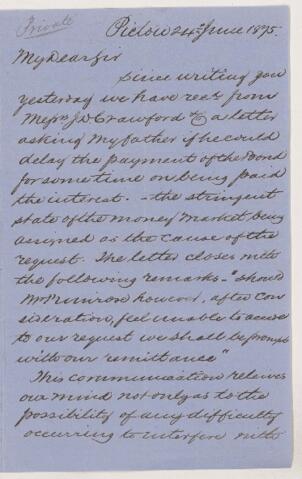 Private
Pictou 24th June 1875.
My Dear Sir
Since writing you
yesterday we have recd from
Messrs J W Crawford & Co a letter
asking my father if he could
delay the payment of the Bond
for sometime on being paid
the interest. - the stringent
state of the money market being
assigned as the cause of the
request. The letter closes with
the following remarks - "Should
Mr Primrose however, after con
sideration, feel unable to accede
to our request we shall be prompt
with our remittance"
This communication relieves
our mind not only as to the
possibility of any difficulty
occurring to interfere with